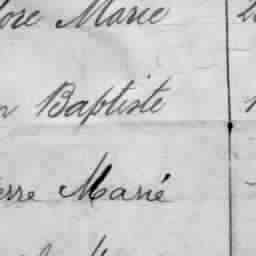 ore Marie
n Baptiste
erre Marie